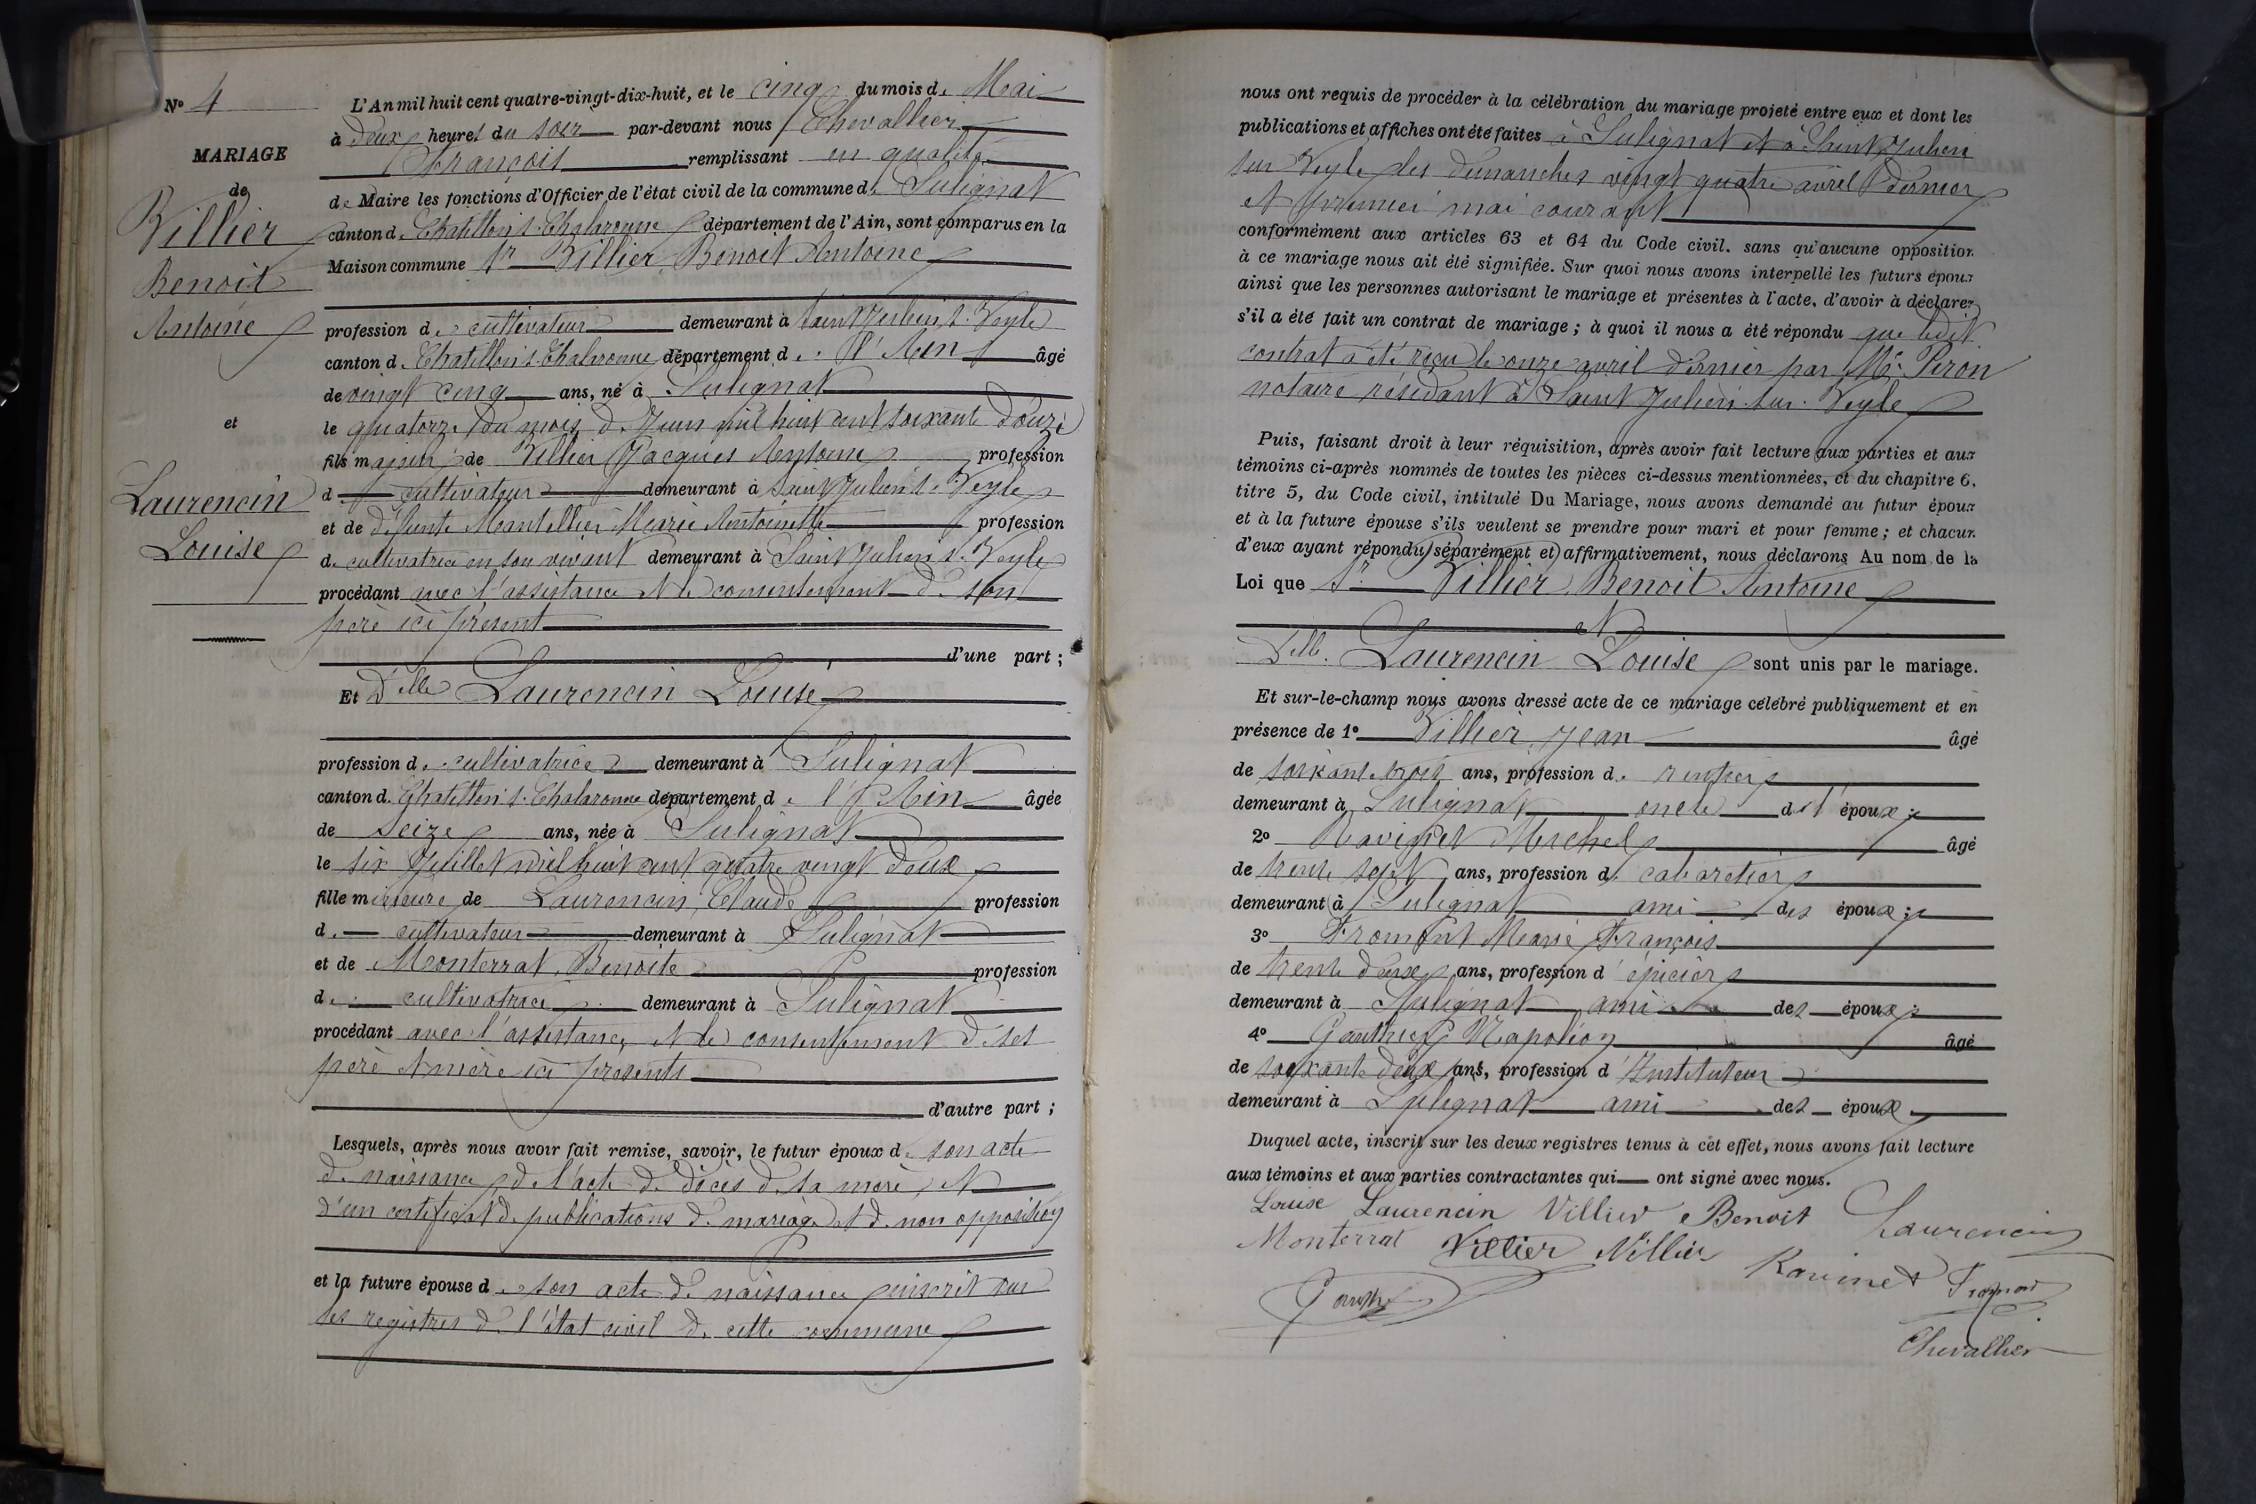 Nº 4
MARIAGE
de
Villier
Benoit
Antoine
et
Laurencin
Louise
L'An mil huit cent quatre-vingt-dix-huit, et le cinq du mois de Mai
à deux heures du soir par-devant nous Chevallier
François remplissant en qualité
de Maire les fonctions d'Officier de l'état civil de la commune de Sulignat
canton de Chatillon s. Chalaronne département de l'Ain, sont comparus en la
Maison commune Sr Villier Benoit Antoine
profession de cultivateur demeurant à Saint Julien s. Veyle
canton de Chatillon s. Chalaronne département de l'Ain âgé
de vingt cinq ans, né à Sulignat
le quatorze du mois de Juin mil huit cent soixante douze
fils majeur de Villier Jacques Antoine profession
de cultivateur demeurant à Saint Julien s. Veyle
et de défunte Mantellier Marie Antoinette profession
de cultivatrice en son vivant demeurant à Saint Julien s. Veyle
procédant avec l'assistance et le consentement de son
père ici présent
d'une part ;
Et Delle Laurencin Louise
profession de cultivatrice demeurant à Sulignat
canton de Chatillon s. Chalaronne département de l'Ain âgée
de seize ans, née à Sulignat
le six Juillet mil huit cent quatre vingt deux
fille mineure de Laurencin Claude profession
de cultivateur demeurant à Sulignat
et de Monterrat Benoite profession
de cultivatrice demeurant à Sulignat
procédant avec l'assistance et le consentement de ses
père et mère ici présents
d'autre part ;
Lesquels, après nous avoir fait remise, savoir, le futur époux de son acte
de naissance, de l'acte de décès de sa mère, et
d'un certificat de publications de mariage et de non opposition
et la future épouse de son acte de naissance inscrit sur
les registres de l'état civil de cette commune
nous ont requis de procéder à la célébration du mariage projeté entre eux et dont les
publications et affiches ont été faites à Sulignat et à Saint Julien
sur Veyle les dimanches vingt quatre avril dernier
et premier mai courant
conformément aux articles 63 et 64 du Code civil. sans qu'aucune opposition
à ce mariage nous ait été signifiée. Sur quoi nous avons interpellé les futurs époux
ainsi que les personnes autorisant le mariage et présentes à l'acte, d'avoir à déclarer
s'il a été fait un contrat de mariage ; à quoi il nous a été répondu que ledit
contrat a été reçu le onze avril dernier par Me Peron
notaire résidant à Saint Julien sur Veyle
Puis, faisant droit à leur réquisition, après avoir fait lecture aux parties et aux
témoins ci-après nommés de toutes les pièces ci-dessus mentionnées, et du chapitre 6,
titre 5, du Code civil, intitulé Du Mariage, nous avons demandé au futur époux
et à la future épouse s'ils veulent se prendre pour mari et pour femme ; et chacun
d'eux ayant répondu séparément et affirmativement, nous déclarons Au nom de la
Loi que Sr Villier Benoit Antoine
et
Delle Laurencin Louise sont unis par le mariage.
Et sur-le-champ nous avons dressé acte de ce mariage célébré publiquement et en
présence de 1º Villier Jean âgé
de soixante trois ans, profession de rentier
demeurant à Sulignat oncle de l'époux ;
2º Ravinet Michel âgé
de trente sept ans, profession de cabaretier
demeurant à Sulignat ami des époux ;
3º Fromont Marie François
de trente deux ans, profession d'épicier
demeurant à Sulignat ami des époux ;
4º Gauthier Napoléon âgé
de soixante deux ans, profession d'Instituteur
demeurant à Sulignat ami des époux
Duquel acte, inscrit sur les deux registres tenus à cet effet, nous avons fait lecture
aux témoins et aux parties contractantes qui ont signé avec nous.
Louise Laurencin Villier Benoit Laurencin
Monterrat Villier Villier Ravinet
Chevallier